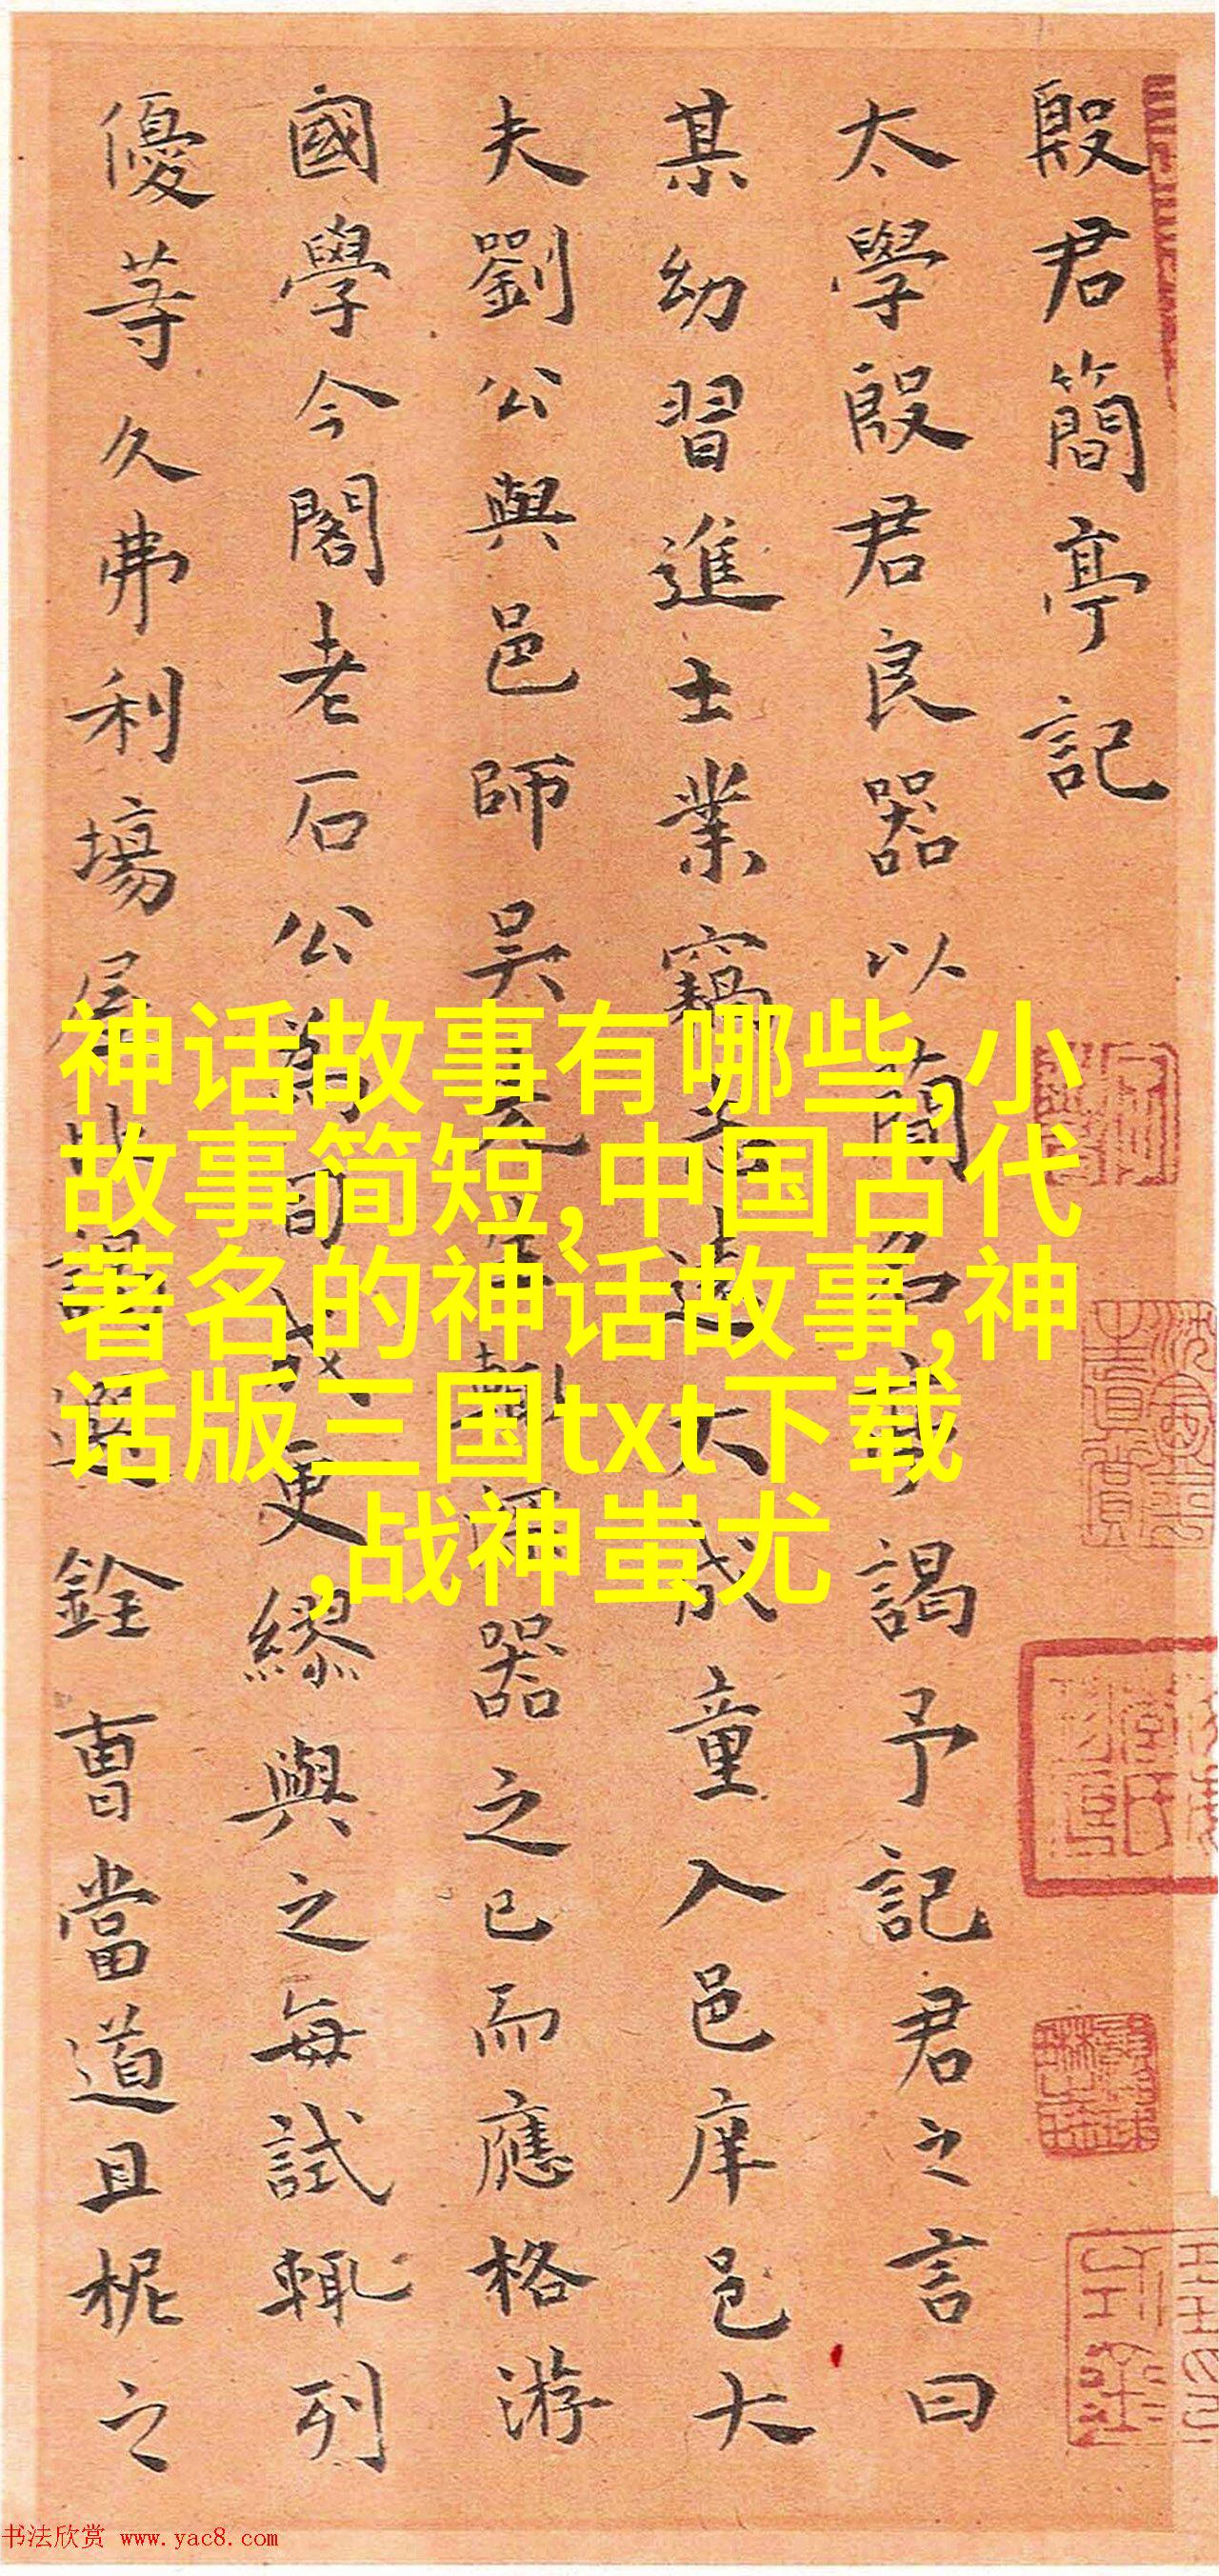 殷君簡亭記
太學殷君良器以簡名亭謁予記君之言曰
某幼習進士業竊志遠大成童入邑庠邑大
夫劉公與邑師吳先生勤師器之已而應格游
國學今閣老石公為司成更繆與之每試輒列
優等久弗利場屋比謁選銓曹當道且柅之
神话故事有哪些,小
故事简短,中国古代
著名的神话故事,神
话版三国txt下载
,战神蚩尤
书法欣赏 www.yac8.com